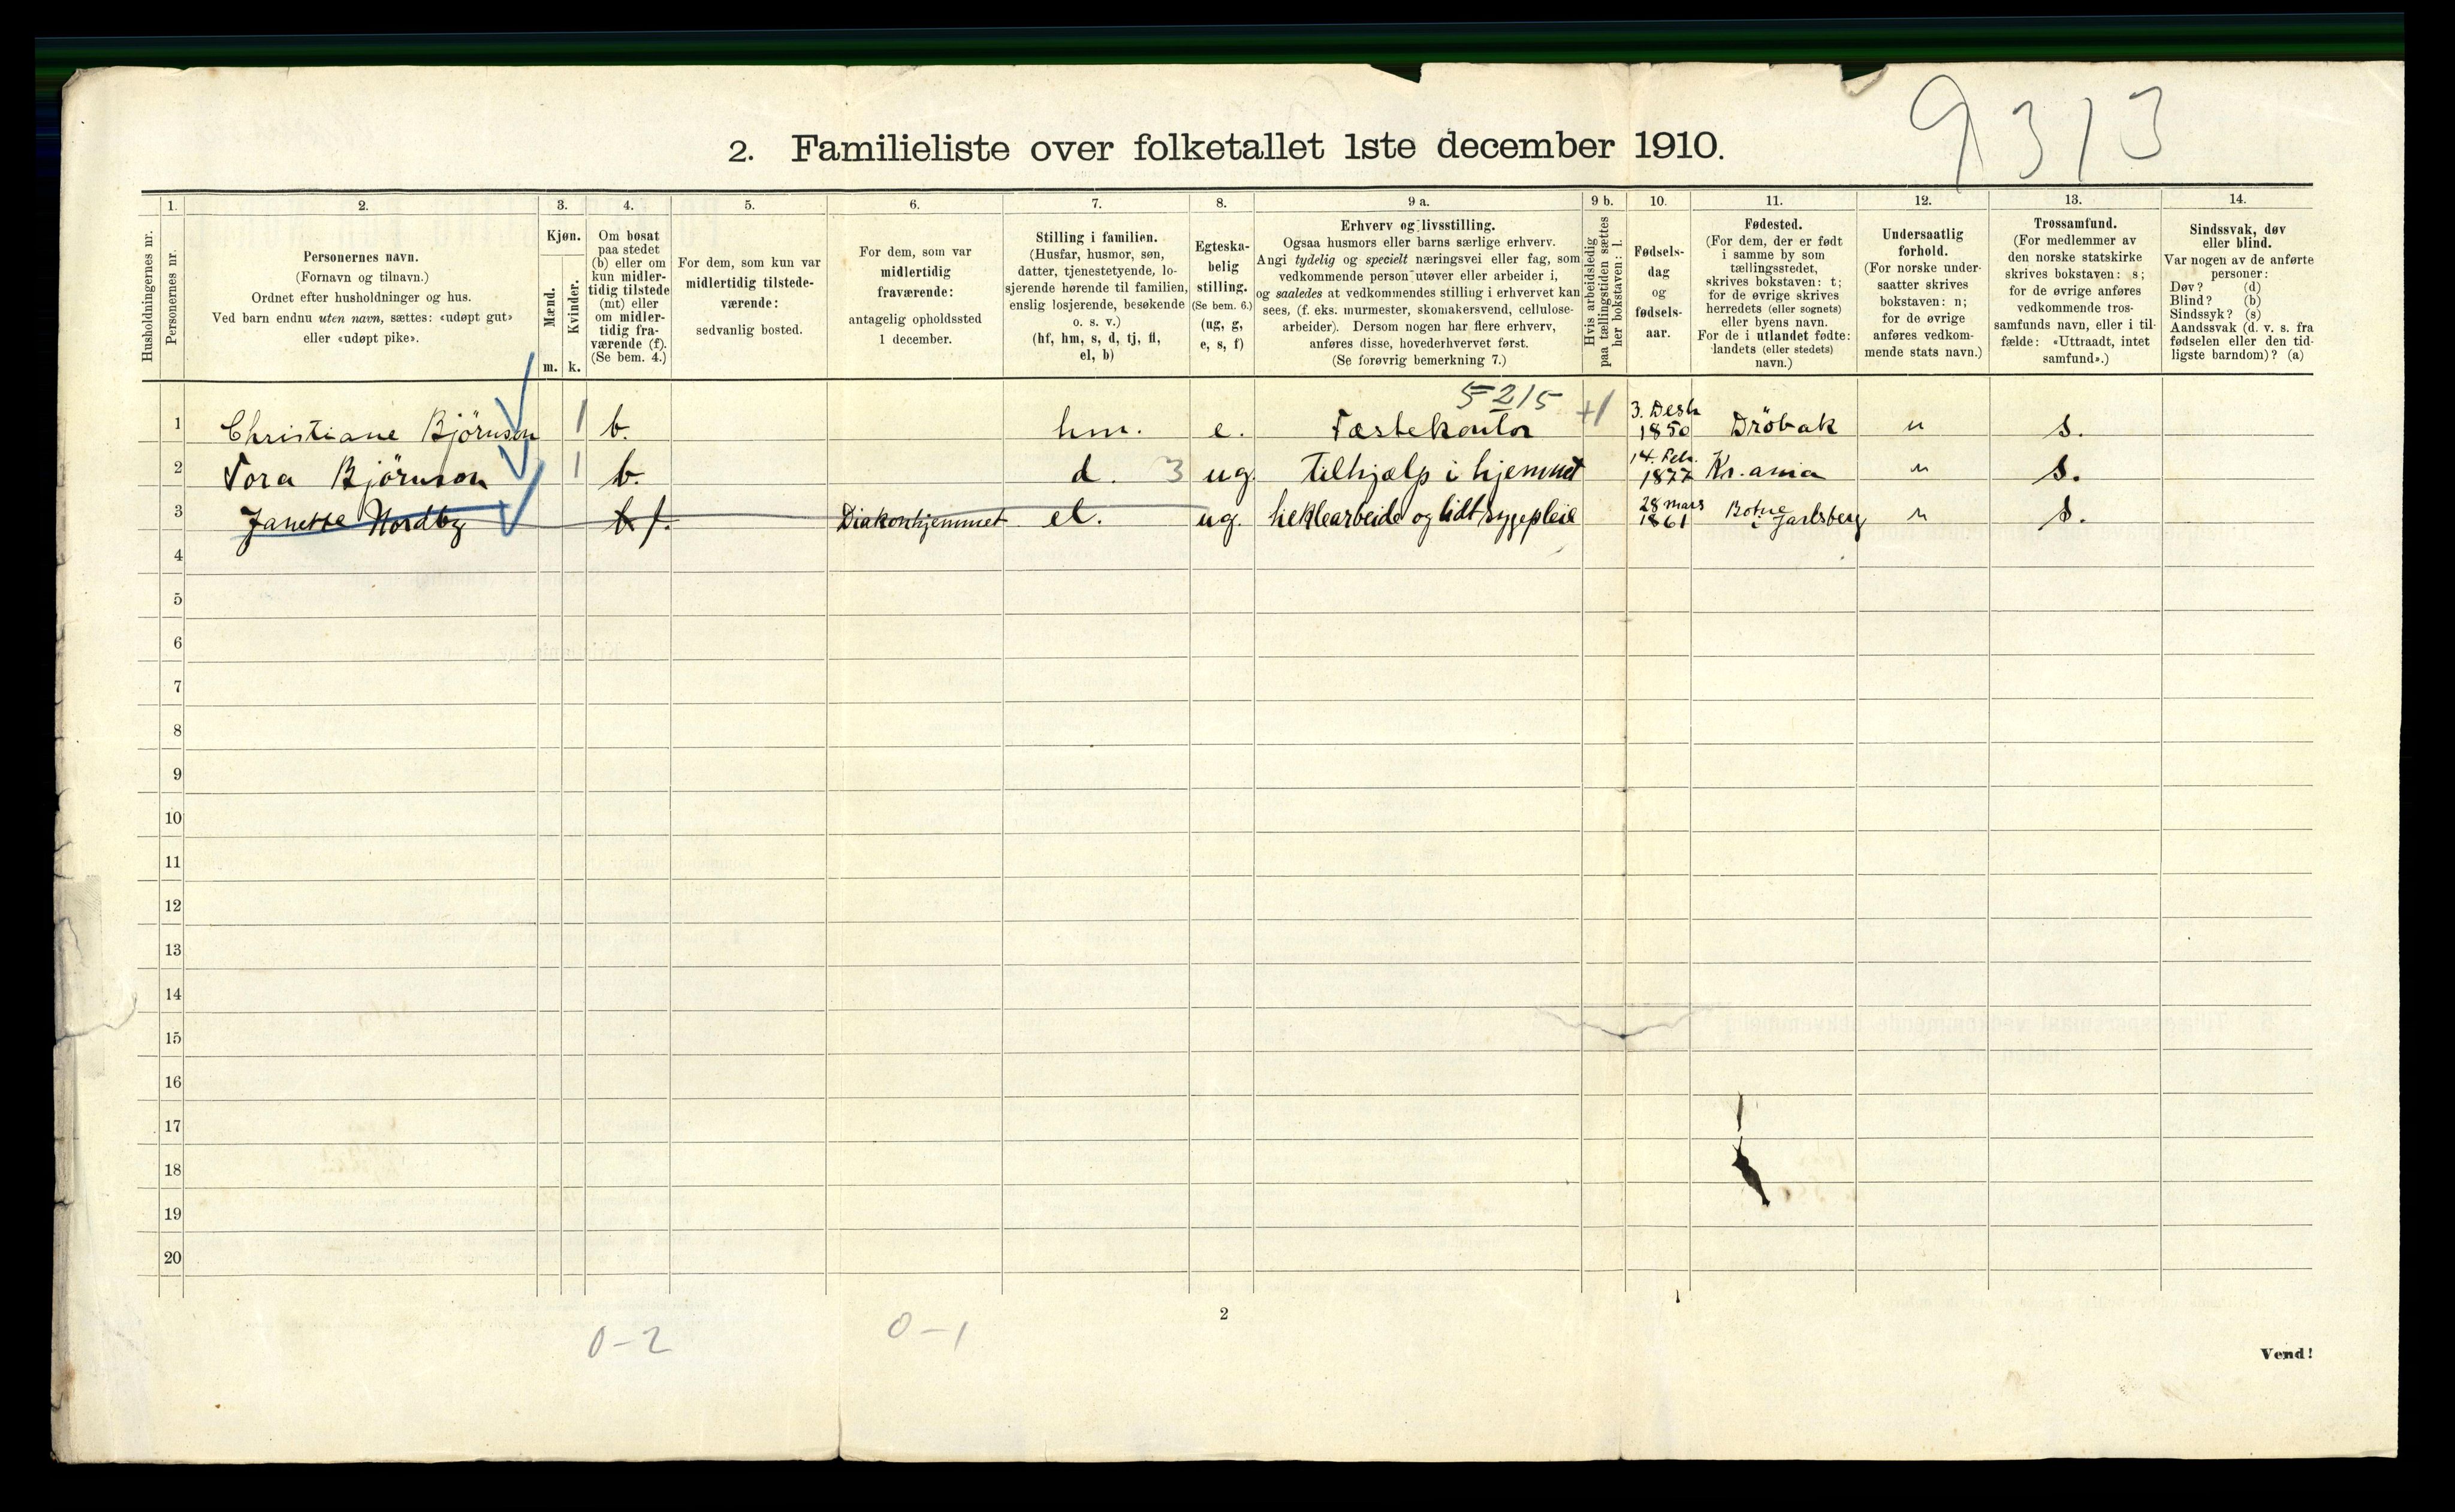 9313
2. Familieliste over folketallet 1ste december 1910.
1. 2. 3. 4. 5. 6. 7. 8. 9 a. 9 b. 10. 11. 12. 13. 14.
Husholdningernes nr.
Personernes nr.
Personernes navn.
(Fornavn og tilnavn.)
Ordnet efter husholdninger og hus.
Ved barn endnu uten navn, sættes: «udøpt gut»
eller «udøpt pike».
Kjøn.
Mænd.
Kvinder.
m. k.
Om bosat
paa stedet
(b) eller om
kun midler-
tidig tilstede
(mt) eller
om midler-
tidig fra-
værende (f).
(Se bem. 4.)
For dem, som kun var
midlertidig tilstede-
værende:
sedvanlig bosted.
For dem, som var
midlertidig
fraværende:
antagelig opholdssted
1 december.
Stilling i familien.
(Husfar, husmor, søn,
datter, tjenestetyende, lo-
sjerende hørende til familien,
enslig losjerende, besøkende
o. s. v.)
(hf, hm, s, d, tj, fl,
el, b)
Egteska-
belig
stilling.
(Se bem. 6.)
(ug, g,
e, s, f)
Erhverv og livsstilling.
Ogsaa husmors eller barns særlige erhverv.
Angi tydelig og specielt næringsvei eller fag, som
vedkommende person utøver eller arbeider i,
og saaledes at vedkommendes stilling i erhvervet kan
sees, (f. eks. murmester, skomakersvend, cellulose-
arbeider). Dersom nogen har flere erhverv,
anføres disse, hovederhvervet først.
(Se forøvrig bemerkning 7.)
Hvis arbeidsledig
paa tællingstiden sættes
her bokstaven: l.
Fødsels-
dag
og
fødsels-
aar.
Fødested.
(For dem, der er født
i samme by som
tællingsstedet,
skrives bokstaven: t;
for de øvrige skrives
herredets (eller sognets)
eller byens navn.
For de i utlandet fødte:
landets (eller stedets)
navn.)
Undersaatlig
forhold.
(For norske under-
saatter skrives
bokstaven: n;
for de øvrige
anføres vedkom-
mende stats navn.)
Trossamfund.
(For medlemmer av
den norske statskirke
skrives bokstaven: s;
for de øvrige anføres
vedkommende tros-
samfunds navn, eller i til-
fælde: «Uttraadt, intet
samfund».)
Sindssvak, døv
eller blind.
Var nogen av de anførte
personer:
Døv? (d)
Blind? (b)
Sindssyk? (s)
Aandssvak (d. v. s. fra
fødselen eller den tid-
ligste barndom)? (a)
5215
1 Christiane Björnson 1 b. hm. e. Fæstekontor +1 3. Desb. 1850 Dröbak n s.
2 Tora Björnson 1 b. d. 3 ug. tilhjælp i hjemmet 14. Feb. 1877 Kr.ania n s.
3 Janette Nordby b f. Diakonhjemmet el. ug. heklearbeide og lidt sygepleie 28 mars 1861 Botne i Jarlsberg n s.
4
5
6
7
8
9
10
11
12
13
14
15
16
17
18
19
20
2
0-2 0-1
Vend!